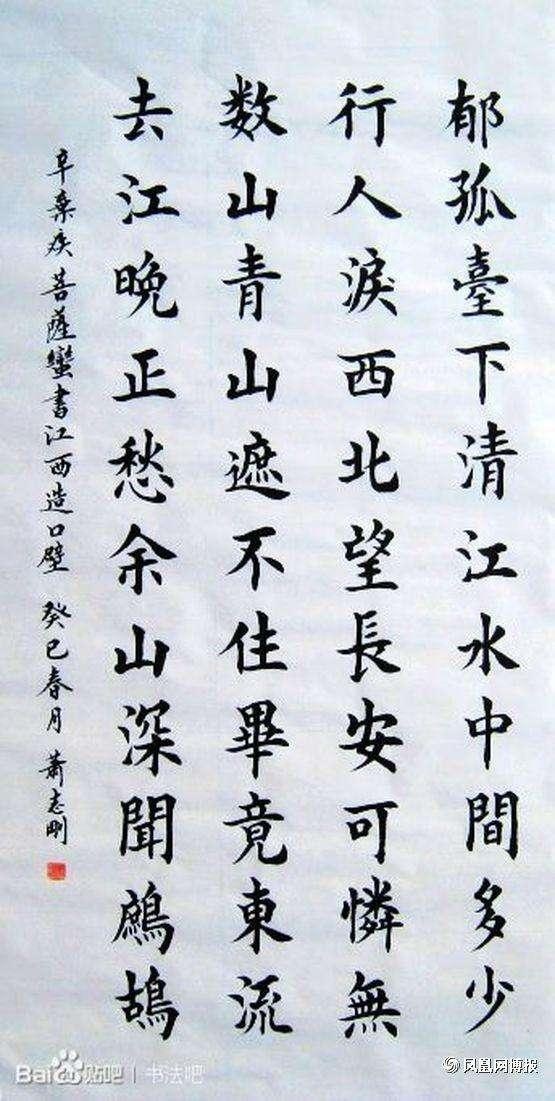 郁孤臺下清江水中間多少
行人淚西北望長安可憐無
数山青山遮不住畢竟東流
去江晚正愁余山深聞鷓鴣
辛棄疾菩薩蠻書江西造口壁 癸巳春月 蕭志剛
Bai百度贴吧 | 书法吧
凤凰网博报